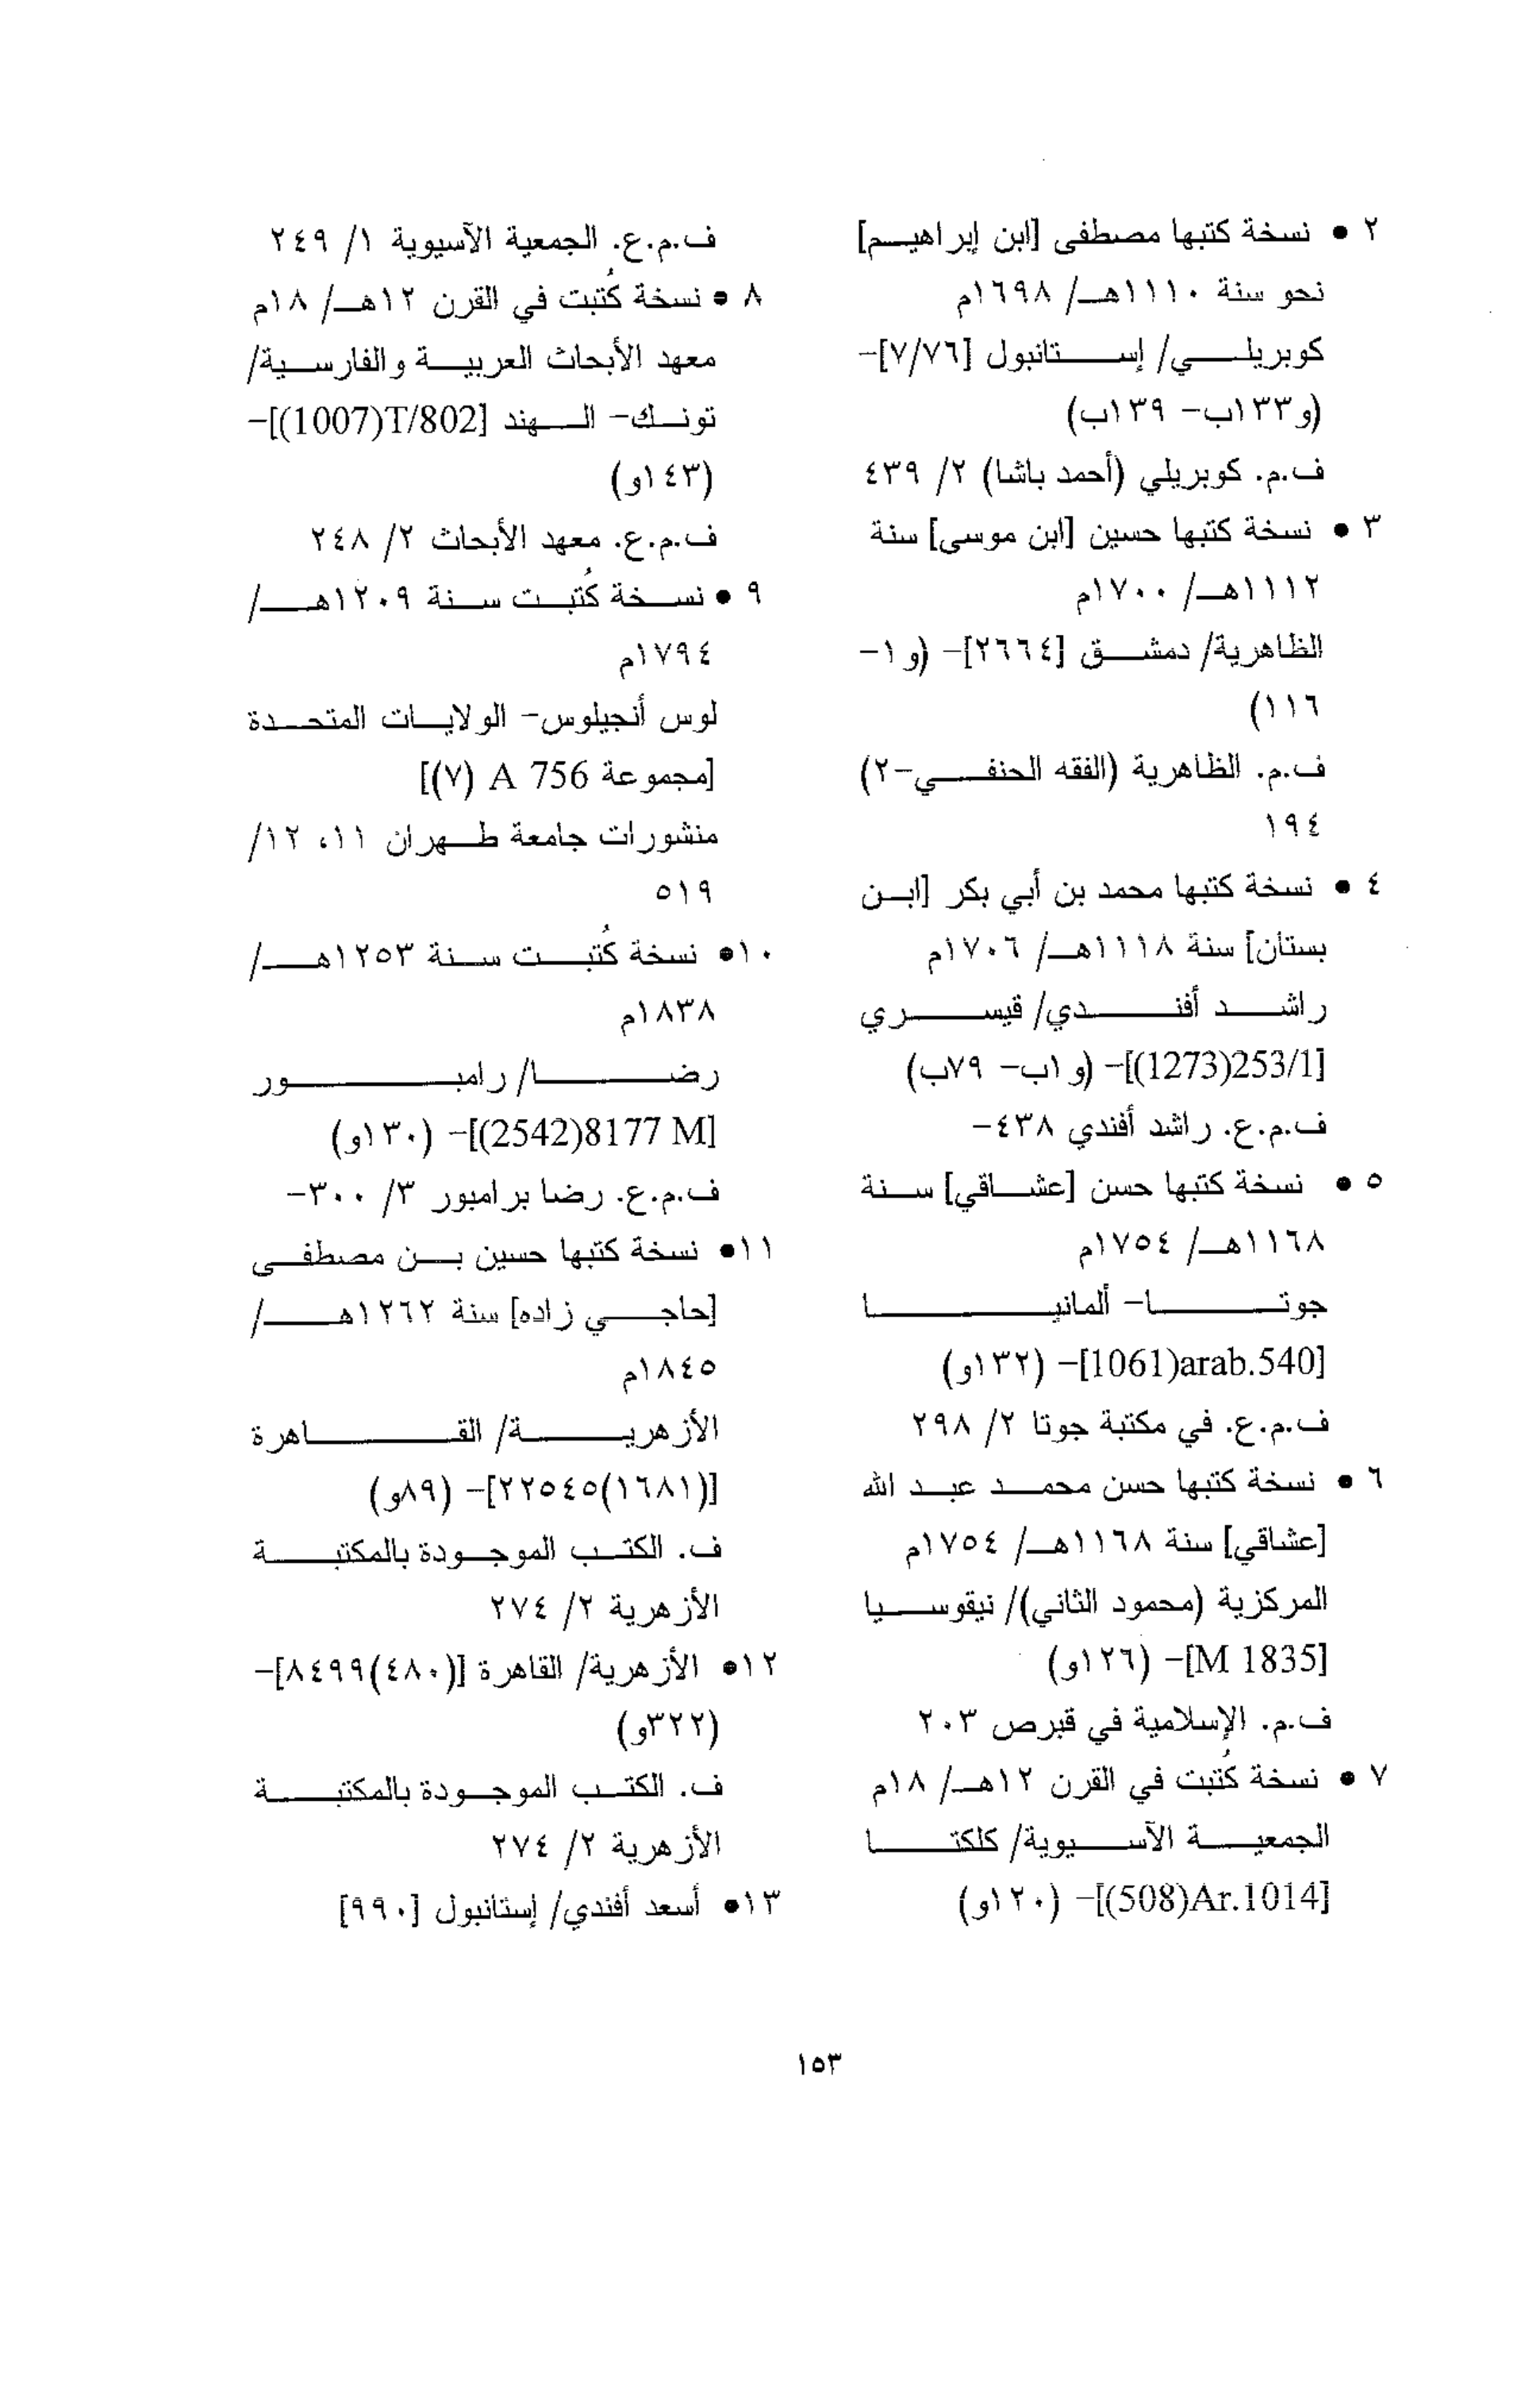 ٢ • نسخة كتبها مصطفى [ابن إبراهيم]
نحو سنة ١١١٠هـ/ ١٦٩٨م
كوبريلي/ إستانبول [٧/٧٦]-
(و١٣٣ب- ١٣٩ب)
ف.م. كوبريلي (أحمد باشا) ٢/ ٤٣٩
٣ • نسخة كتبها حسين [ابن موسى] سنة
١١١٢هـ/ ١٧٠٠م
الظاهرية/ دمشق [٢٦٦٤]- (و١-
١١٦)
ف.م. الظاهرية (الفقه الحنفي-٢)
١٩٤
٤ • نسخة كتبها محمد بن أبي بكر [ابن
بستان] سنة ١١١٨هـ/ ١٧٠٦م
راشد أفندي/ قيسري
[253/1(1273)]- (و١ب- ٧٩ب)
ف.م.ع. راشد أفندي ٤٣٨-
٥ • نسخة كتبها حسن [عشاقي] سنة
١١٦٨هـ/ ١٧٥٤م
جوتا- ألمانيا
[1061)arab.540]- (١٣٢و)
ف.م.ع. في مكتبة جوتا ٢/ ٢٩٨
٦ • نسخة كتبها حسن محمد عبد الله
[عشاقي] سنة ١١٦٨هـ/ ١٧٥٤م
المركزية (محمود الثاني)/ نيقوسيا
[M 1835]- (١٢٦و)
ف.م. الإسلامية في قبرص ٢٠٣
٧ • نسخة كُتبت في القرن ١٢هـ/ ١٨م
الجمعية الآسيوية/ كلكتا
[(508)Ar.1014]- (١٢٠و)
ف.م.ع. الجمعية الآسيوية ١/ ٢٤٩
٨ • نسخة كُتبت في القرن ١٢هـ/ ١٨م
معهد الأبحاث العربية والفارسية/
تونك- الهند [(1007)T/802]-
(١٤٣و)
ف.م.ع. معهد الأبحاث ٢/ ٢٤٨
٩ • نسخة كُتبت سنة ١٢٠٩هـ/
١٧٩٤م
لوس أنجيلوس- الولايات المتحدة
[مجموعة A 756 (٧)]
منشورات جامعة طهران ١١، ١٢/
٥١٩
١٠• نسخة كُتبت سنة ١٢٥٣هـ/
١٨٣٨م
رضا/ رامبور
[(2542)8177 M]- (١٣٠و)
ف.م.ع. رضا برامبور ٣/ ٣٠٠-
١١• نسخة كتبها حسين بن مصطفى
[حاجي زاده] سنة ١٢٦٢هـ/
١٨٤٥م
الأزهرية/ القاهرة
[(١٦٨١)٢٢٥٤٥]- (٨٩و)
ف. الكتب الموجودة بالمكتبة
الأزهرية ٢/ ٢٧٤
١٢• الأزهرية/ القاهرة [(٤٨٠)٨٤٩٩]-
(٣٢٢و)
ف. الكتب الموجودة بالمكتبة
الأزهرية ٢/ ٢٧٤
١٣• أسعد أفندي/ إستانبول [٩٩٠]
١٥٣